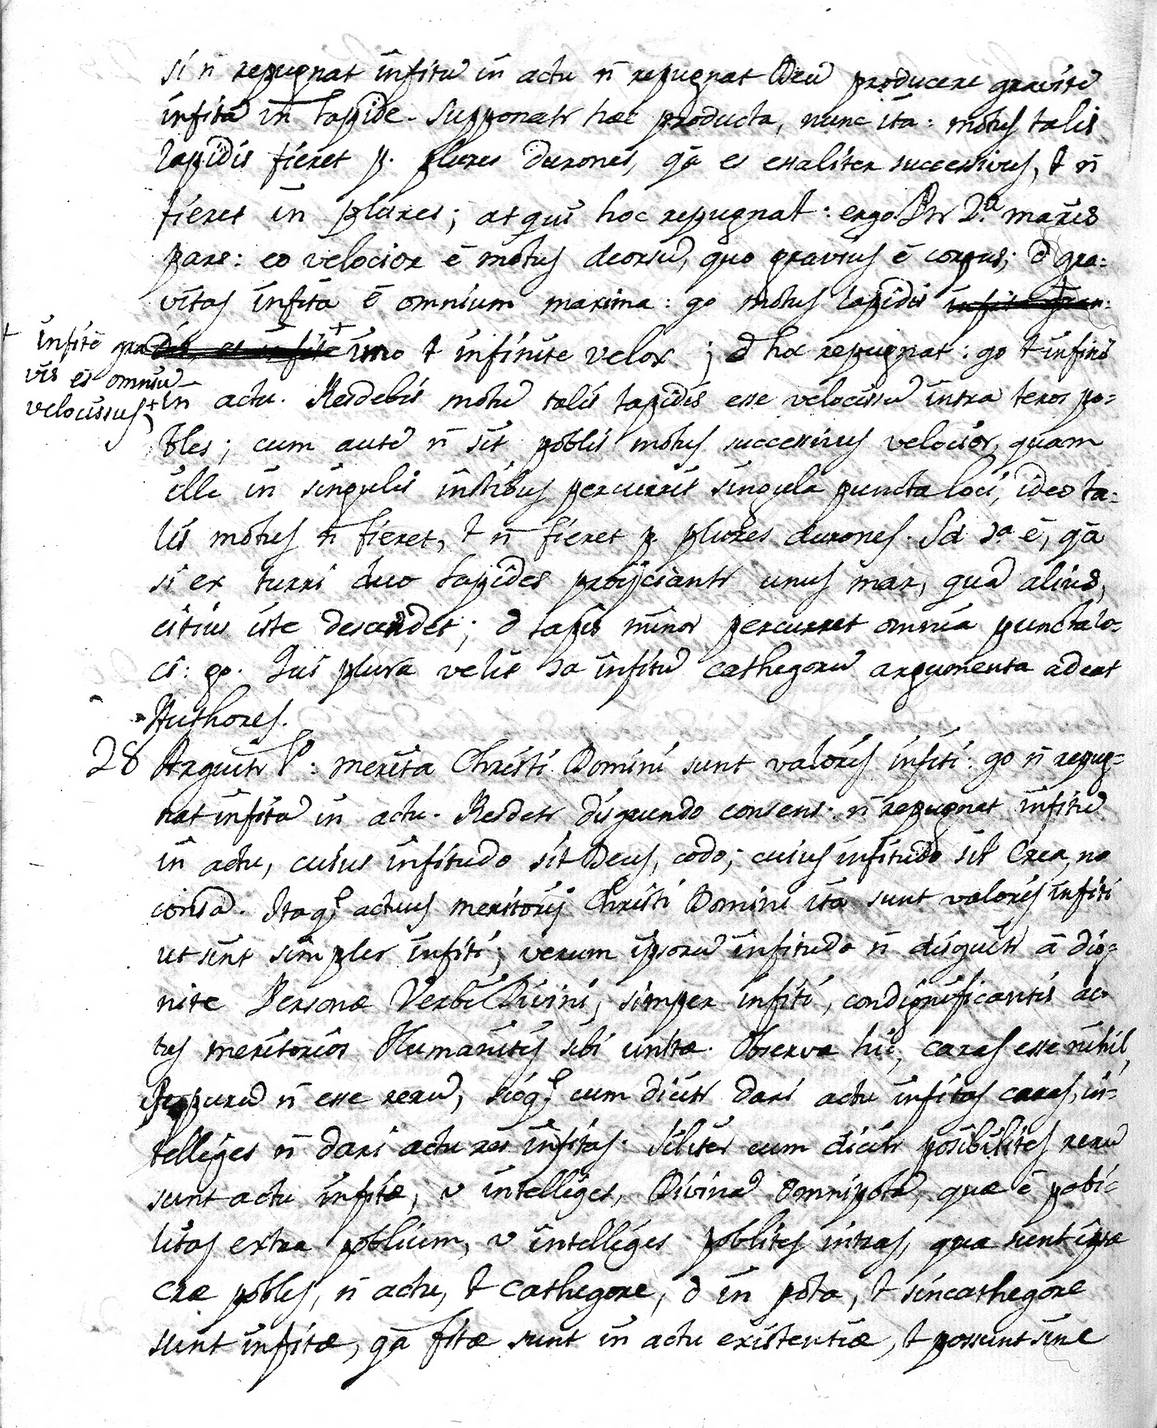 si n̄ repugnat infitū in actu n̄ repugnat Deū producere gravitē
infitā in Lapide. Supponatr haec producta, nunc ita: motus talis
lapidis fieret p. plures durones, qā es enaliter successivus, et n̄
fieret in plures; atqui hoc repugnat: ergo. Pr 2.ª maris
pars: eo velocior ē motus deorsū, quo gravius ē corpus; d gra:
vitas infita ē omnium maxima: go motus lapidis
+ infitē gra
vis eē omniū
velocissus +
imo et infinite velox; d hoc repugnat: go et infini
in actu. Resdebis motū talis lapidis esse velocissū intra teros po:
bles; cum autē n̄ sit poblis motus successivus velocior, quam
ille in singulis instibus percurris singula puncta loci, ideo ta:
lis motus n̄ fieret, et n̄ fieret p plures durones. Sd ē, qā
si ex turri duo Lapides projiciantr unus mar, quā alius,
citius iste descendet; d lapis minor percurret omnia puncta lo-
ci: go. Qui plura velit infitū cathegorū argumenta adeat
Authores.
28 Arguitr P.º: merita Christi Domini sunt valoris infiti: go n̄ repug=
nat infitū in actu. Resdetr disguendo consens: n̄ repugnat infitū
in actu, cuius infitudo sit Deus, codo; cuius infitudo sit Crea, no
consa. Itaq; actus meritorii Christi Domini ita sunt valoris infiti
ut sint simpler infiti; verum ipsorū infitudo n̄ disguitr ā dig=
nite Personae Verbi Divini, simper infiti, condignificantis ac-
tus meritorios Humanitis sibi unitae. Observa hic, caras esse nihil,
n̄ esse rerū, sicq; cum dicitr dari actu infitas caras, in-
telliges n̄ dari actu res infitas. Siliter cum dicitr posibilites rerū
sunt actu infitae, v intelliges, Divinā Omnipotā, quae ē pobi=
litas extra poblium, v intelliges poblites intras, qua sunt ipsae
crae pobles, n̄ actu, et cathegore, d in pota, et sincathegore
sunt infitae, qā fitae sunt in actu existentiae, et possunt sine